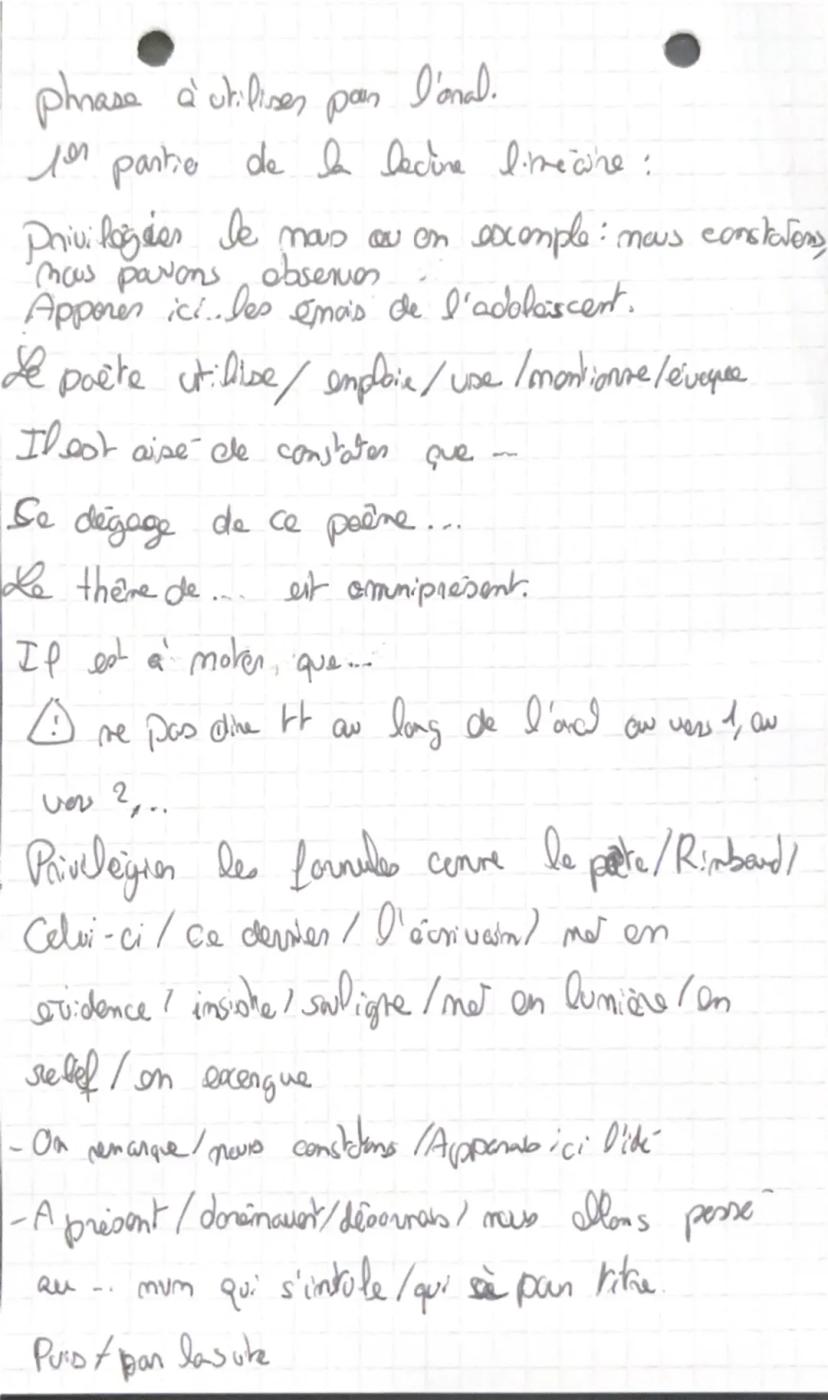 phrase à utiliser pour l'oral.
1er partie de la lecture linéaire :
Privilégier le nous ou on exemple : nous constatons,
nous pouvons observer
Apparer ici... les émois de l'adolescent.
Le poète utilise / emploie / use / mentionne / évoque
Il est aisé de constater que ...
Se dégage de ce poème...
Le thème de ... est omniprésent.
Il est à noter, que...
⚠ ne pas dire tt au long de l'oral au vers 1, au
vers 2,..
Privilégier les formules comme le poète / Rimbaud /
Celui-ci / ce dernier / l'écrivain / met en
evidence / insiste / souligne / met en lumière / en
relief / en exergue
- On remarque / nous constatons / Apparait ici l'idé
- A présent / dorénavant / désormais / nous allons passé
au ... mvm qui s'intule / qui a pour titre.
Puis / par la suite